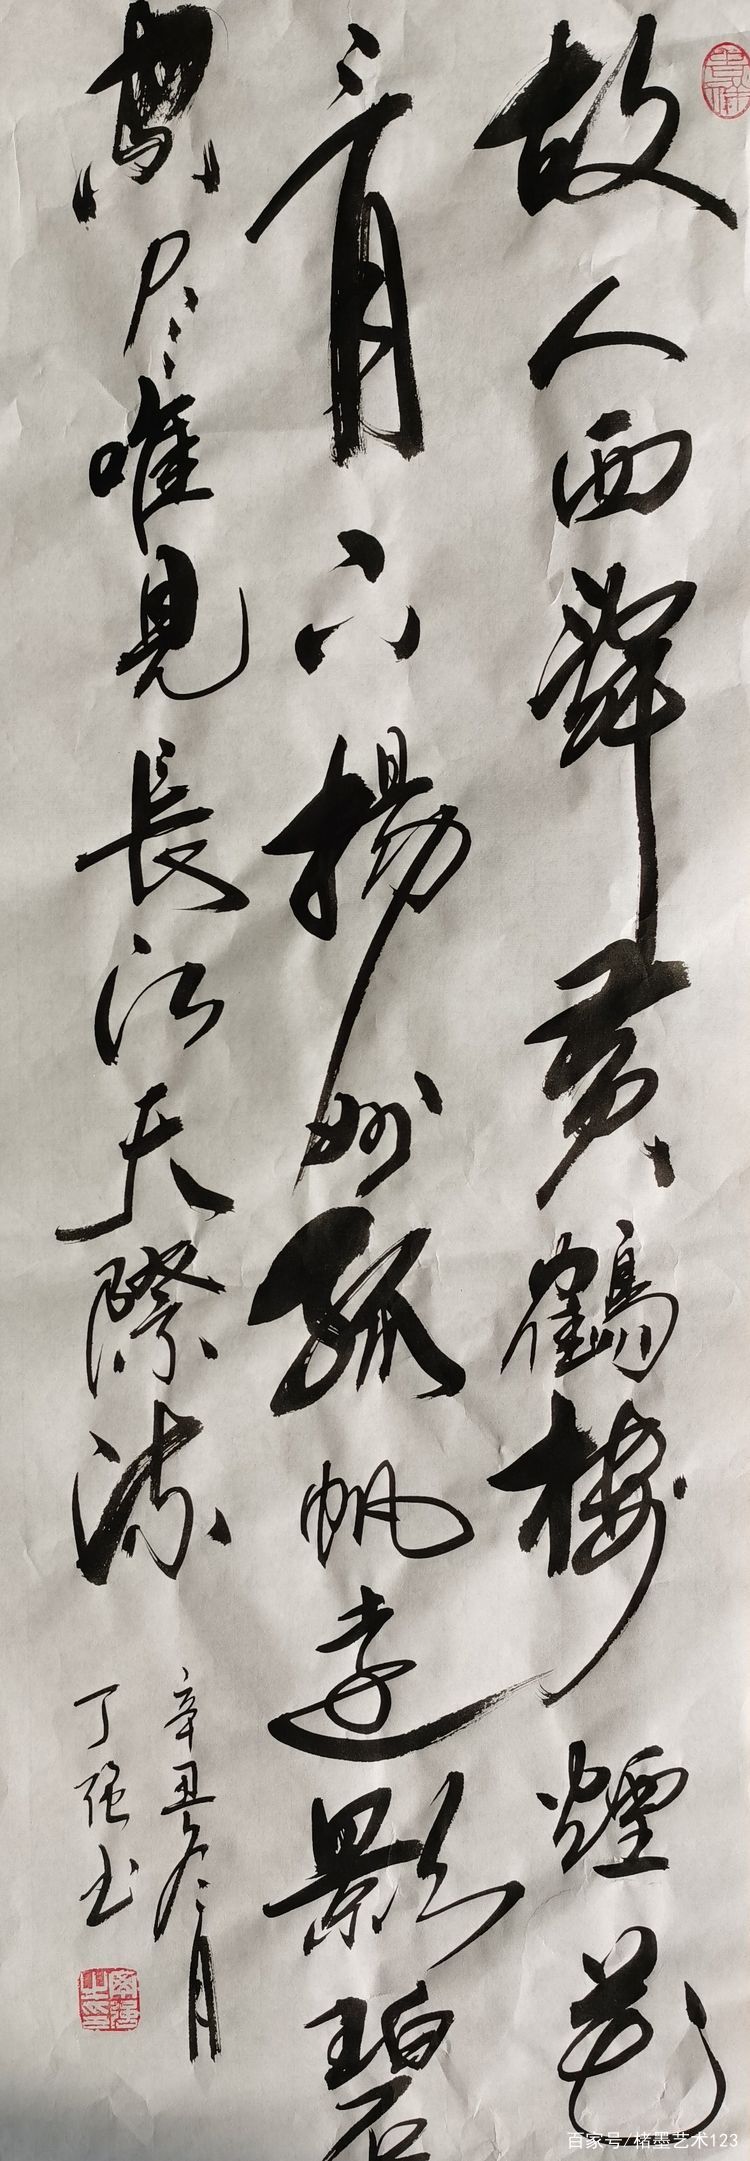 故人西辭黄鶴楼煙花
三月下揚州孤帆遠影碧
空尽唯見長江天際流
辛丑冬月
丁强书
百家号/楮墨艺术123